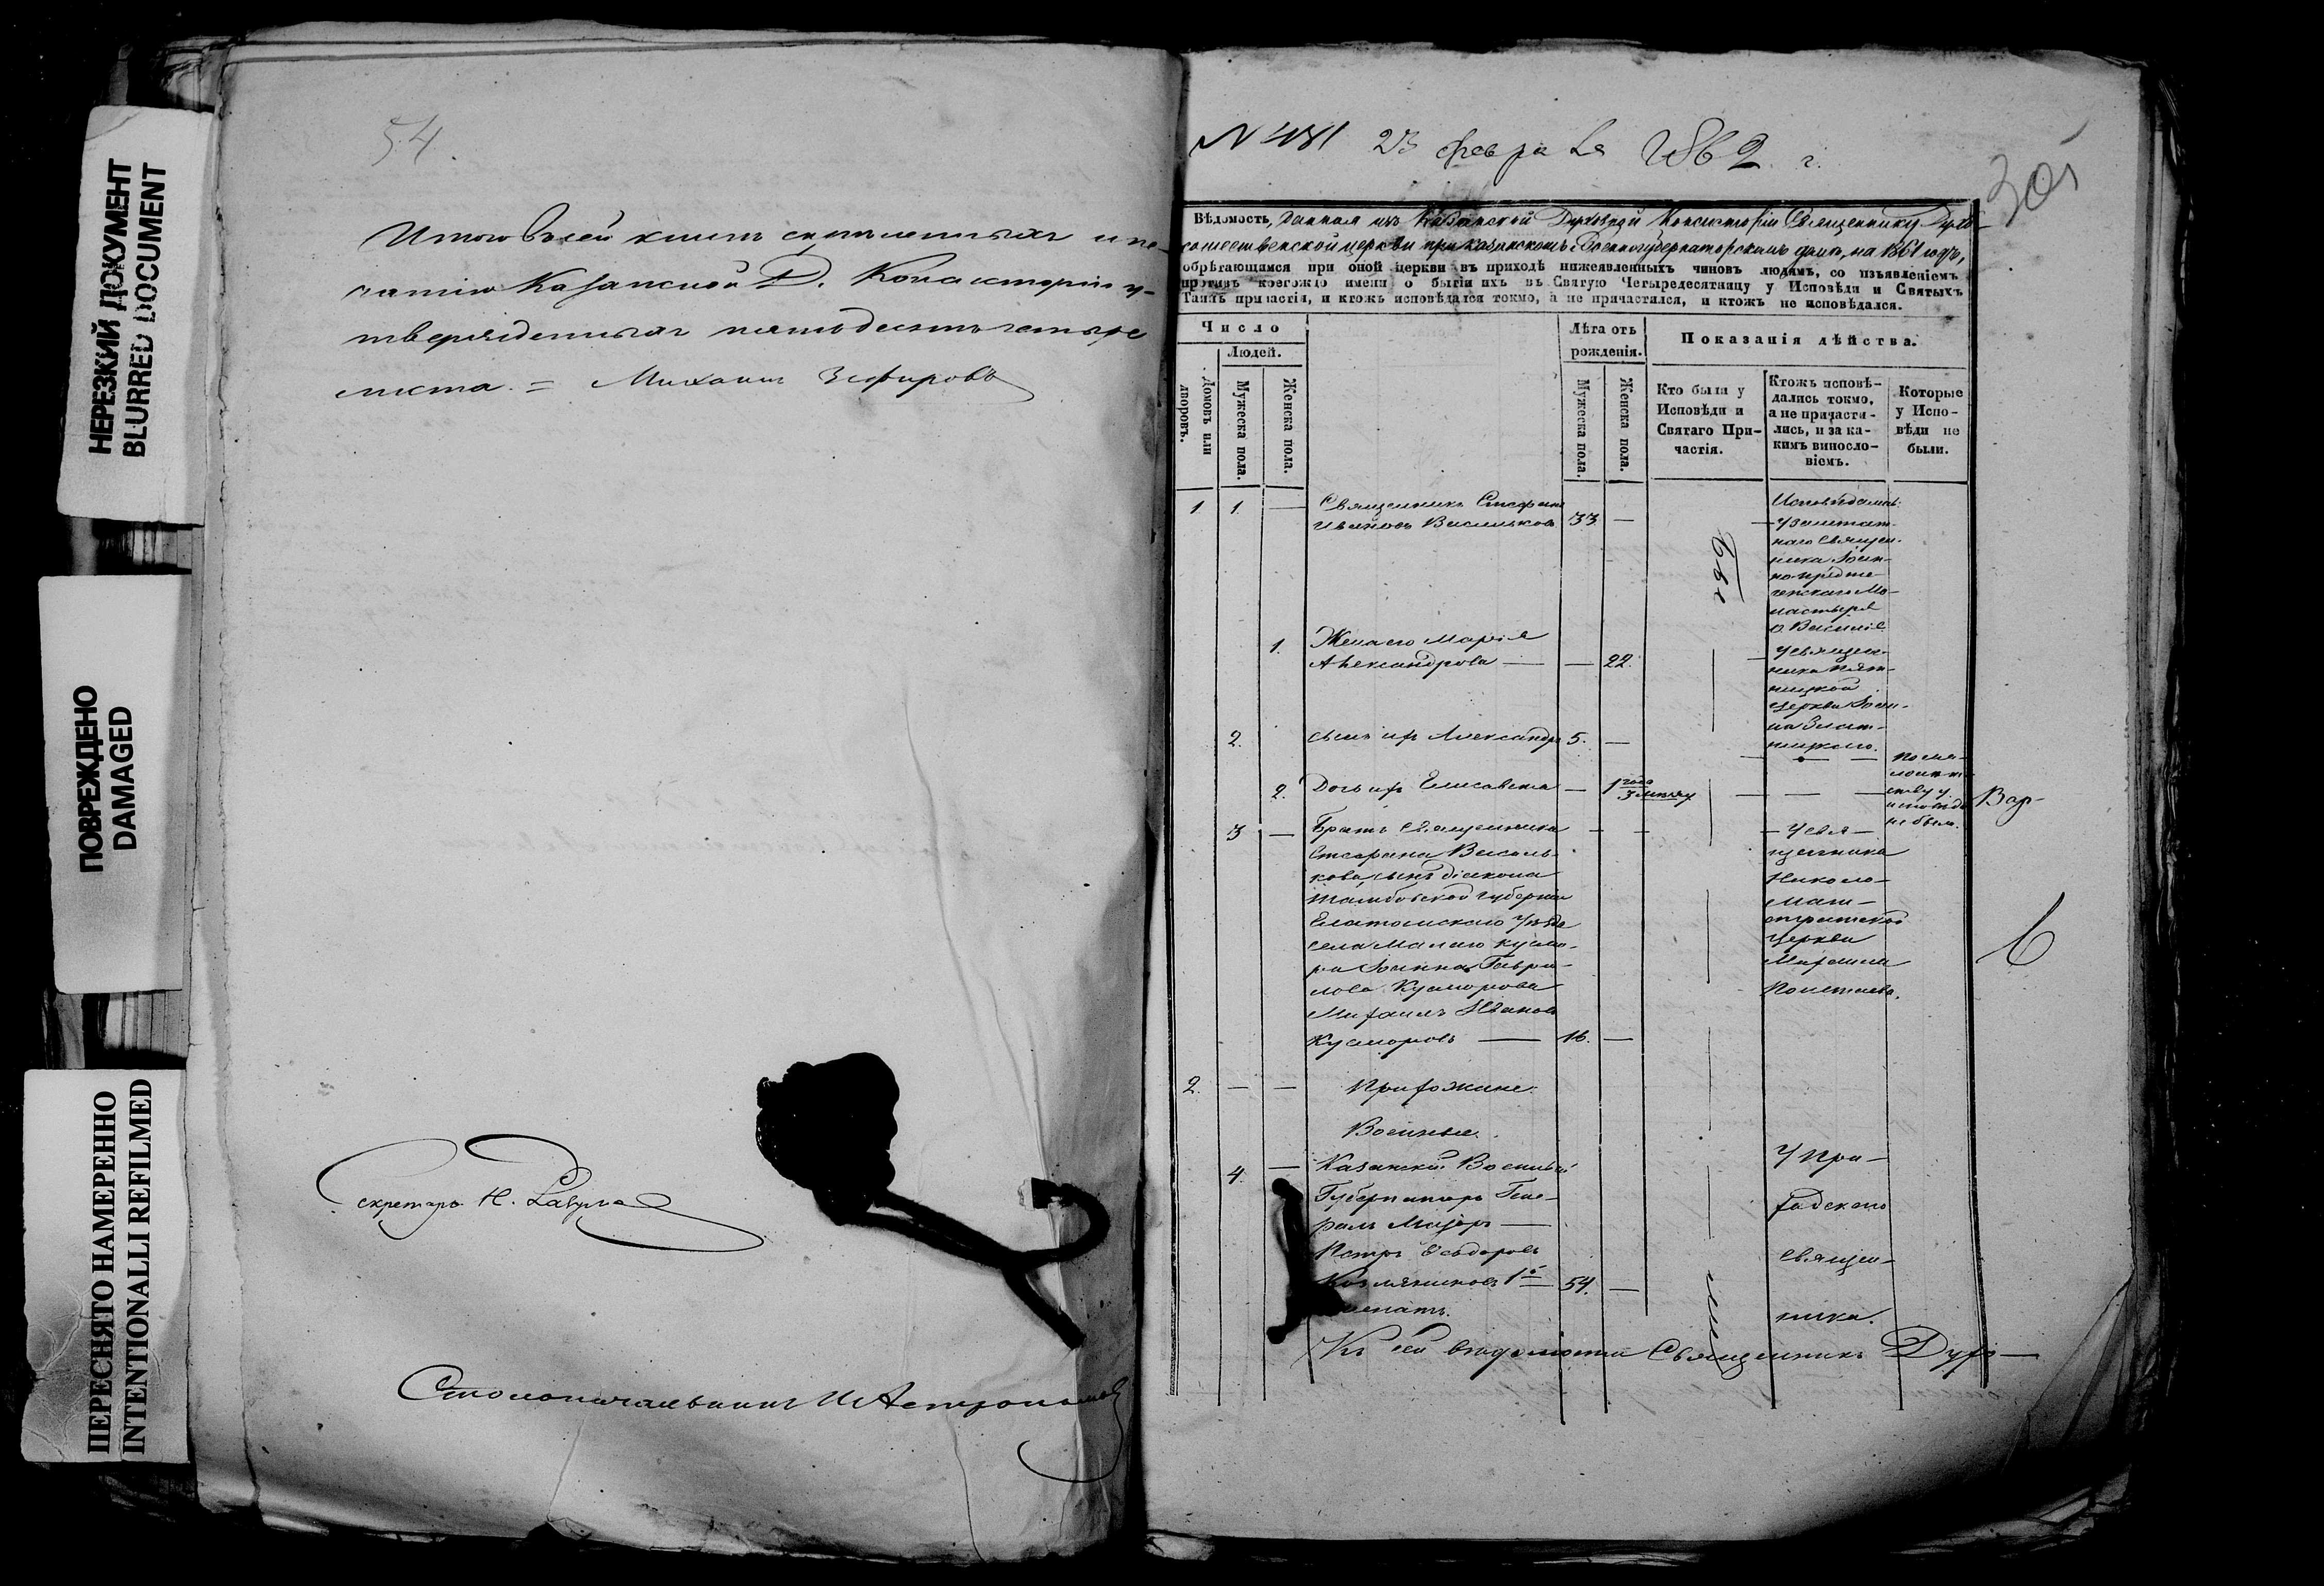 НЕРЕЗКИЙ ДОКУМЕНТ
BLURRED DOCUMENT
ПОВРЕЖДЕНО
DAMAGED
ПЕРЕСНЯТО НАМЕРЕННО
INTENTIONALLI REFILMED
54.
Итого въ сей книгѣ скрѣпленныхъ и пе-
чатью Казанской Д. Консисторіи у-
твержденныхъ пятьдесятъ четыре
листа. = Михаилъ Зефировъ
Секретарь Н.
Столоначальникъ И Астрономовъ
N 481 23 февраля 1862 г.
Вѣдомость, данная изъ Казанской Духовной Консисторіи Священнику Духо-
сошественской церкви при Казанскомъ Военногубернаторскомъ домѣ, на 1861 годъ,
обрѣтающимся при оной церкви въ приходѣ нижеявленныхъ чиновъ людямъ, со изъявленіемъ
противъ коегождо имени о бытіи ихъ въ Святую Четыредесятницу у Исповѣди и Святыхъ
Таинъ причастія, и ктожъ исповѣдался токмо, а не причастился, и ктожъ не исповѣдался.
Число
Людей.
Домовъ или дворовъ.
Мужеска пола.
Женска пола.
Лѣта отъ
рожденія.
Мужеска пола.
Женска пола.
Показанія дѣйства.
Кто были у
Исповѣди и
Святаго При-
частія.
Ктожъ исповѣ-
дались токмо,
а не причасти-
лись, и за ка-
кимъ винословіемъ.
Которые
у Испо-
вѣди не
были.
1 1 — Священникъ Стефанъ
Ивановъ Васильковъ 33 —
Исповѣдались
у заштат-
наго Священ-
ника Іоан-
но-предте-
ченскаго Мо-
настыря
о Василія
1. Жена его Марія
Александрова — — 22.
У священ-
ника Пят-
ницкой
церкви Іоан-
на
2. Сынъ ихъ Александръ 5. —
2. Дочь ихъ Елисавета — 1 года
3 мѣсяц
по ма-
лолѣт-
ству у
исповѣди
не были.
3 — Братъ Священника — —
Стефана Василь-
кова, сынъ діакона
Тамбовской губерніи
Елатомскаго уѣзда
села Малаго Кусмо-
ра Іоанна Гаври-
лова Кусморова
Михаилъ Ивановъ
Кусморовъ — 16. —
У свя-
щенника
Николо-
Церкви
Михаила
2. — — Прихожане.
Военные.
4. — Казанскій Военный
Губернаторъ Гене-
ралъ Маіоръ —
Петръ Ѳедоровъ
Козляниновъ 1й 54. —
женатъ.
У при-
ходскаго
священ-
ника.
Къ сей вѣдомости Священникъ Духо-